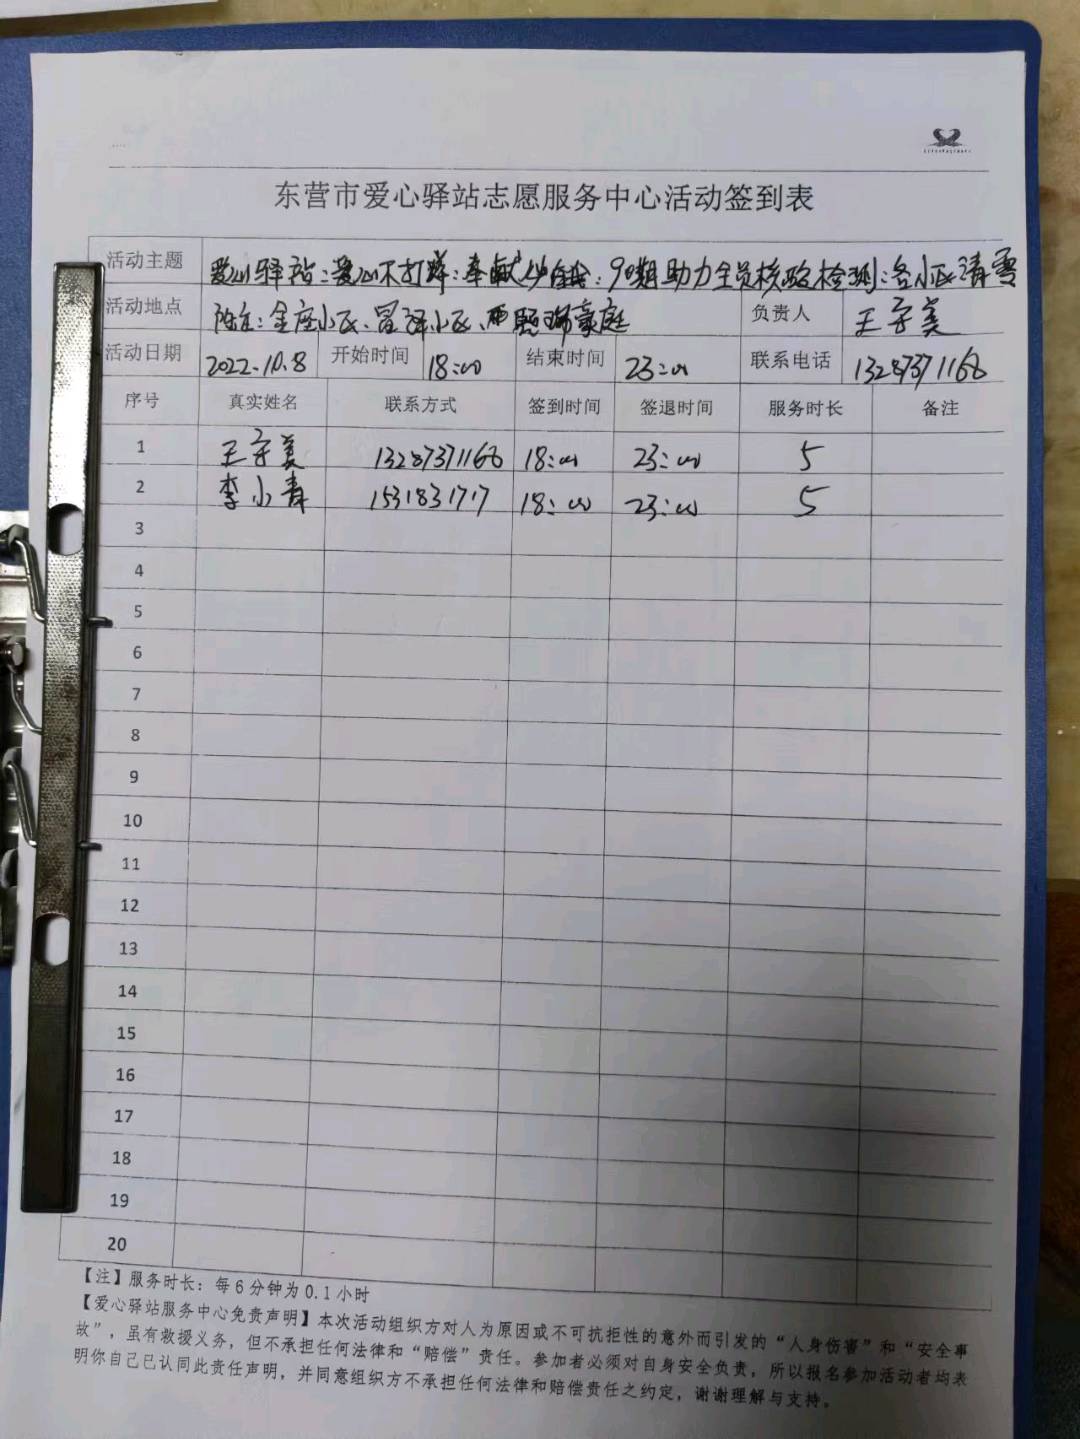 东营市爱心驿站志愿服务中心活动签到表
活动主题 爱心驿站:爱心不打烊:奉献 :90期助力全员核酸检测:各小区清零
活动地点 金座小区、 小区、 豪庭 负责人 王守美
活动日期 2022.10.8 开始时间 18:00 结束时间 23:00 联系电话 13287371166
序号 真实姓名 联系方式 签到时间 签退时间 服务时长 备注
1 王守美 13287371166 18:00 23:00 5
2 李小青 1531831717 18:00 23:00 5
3
4
5
6
7
8
9
10
11
12
13
14
15
16
17
18
19
20
【注】服务时长：每6分钟为0.1小时
【爱心驿站服务中心免责声明】本次活动组织方对人为原因或不可抗拒性的意外而引发的“人身伤害”和“安全事
故”，虽有救援义务，但不承担任何法律和“赔偿”责任。参加者必须对自身安全负责，所以报名参加活动者均表
明你自己已认同此责任声明，并同意组织方不承担任何法律和赔偿责任之约定，谢谢理解与支持。